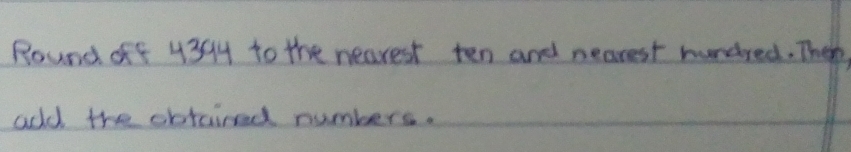 Round off 4394 to the nearest ten and nearest hundred. Then,
add the obtained numbers.